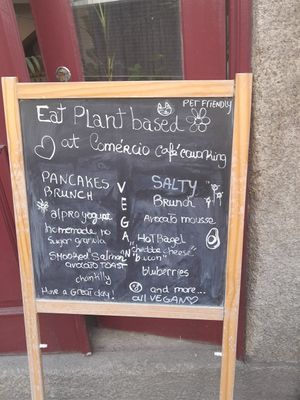 PET FRIENDLY
Eat Plant based
at Comércio Café coworking
PANCAKES
BRUNCH
alpro yogurt
homemade no
sugar granula
Smooked Salmon
avocado TOAST
chantilly
Have a Great day!
VEGAN
SALTY
Brunch
Avocato mousse
Hot Bagel
"chedda cheese"
"bacon"
bluberries
and more...
all VEGAN